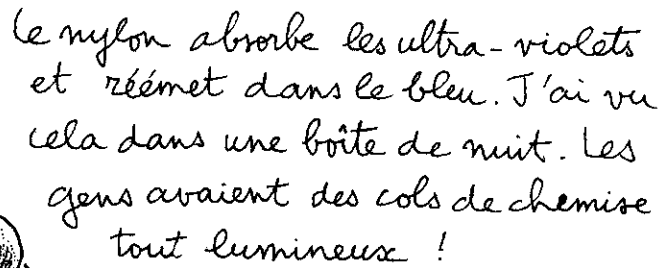 Le nylon absorbe les ultra-violets
et réémet dans le bleu. J'ai vu
cela dans une boîte de nuit. Les
gens avaient des cols de chemise
tout lumineux !